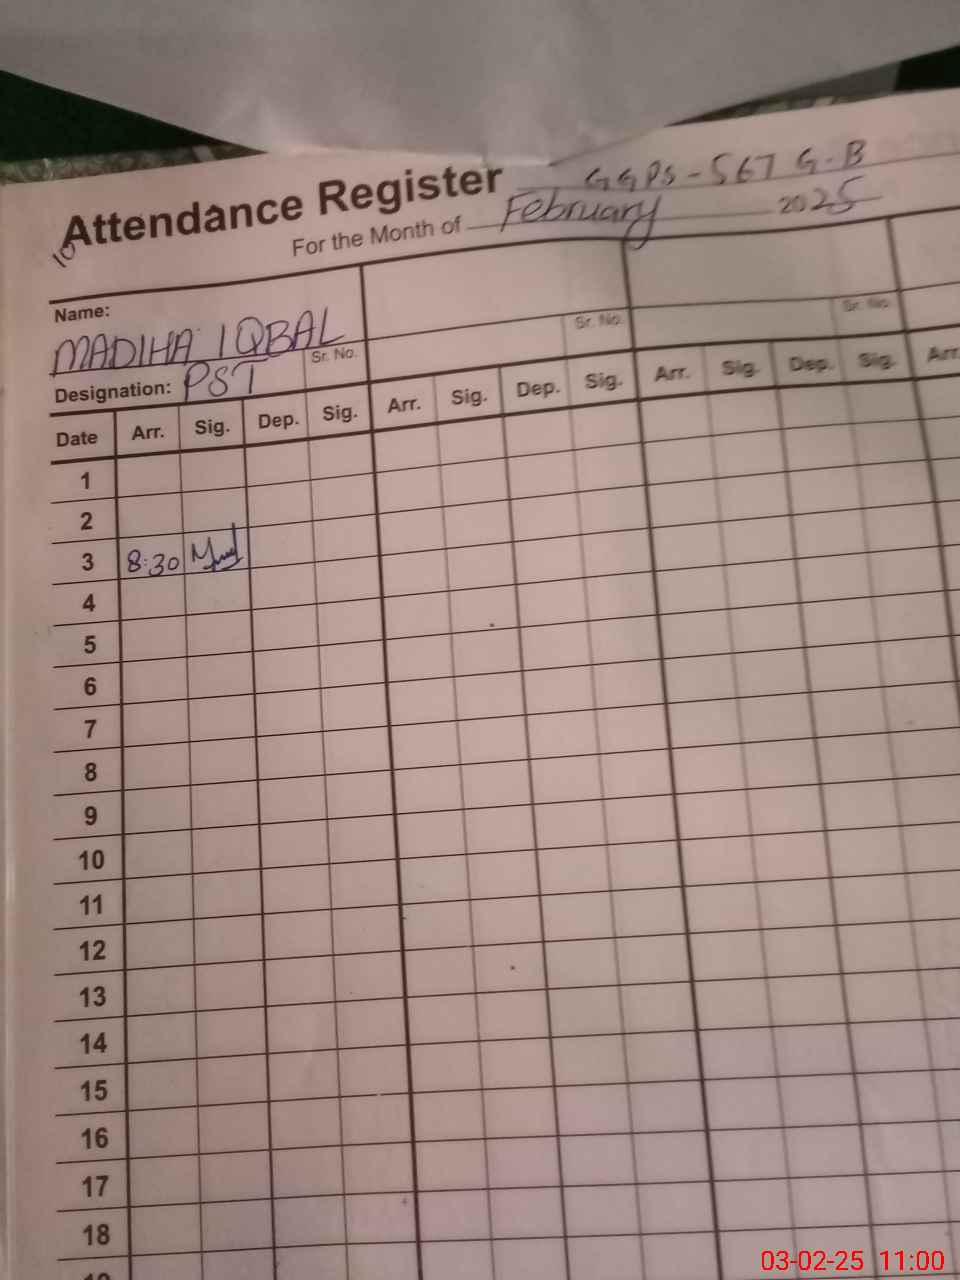 GGPS-567 G-B
Attendance Register
For the Month of February 2025
10
Name:
MADIHA IQBAL
Sr. No. Sr. No. Sr. No.
Designation: PST
Date Arr. Sig. Dep. Sig. Arr. Sig. Dep. Sig. Arr. Sig. Dep. Sig. Arr.
1
2
3 8:30
4
5
6
7
8
9
10
11
12
13
14
15
16
17
18
19
03-02-25 11:00